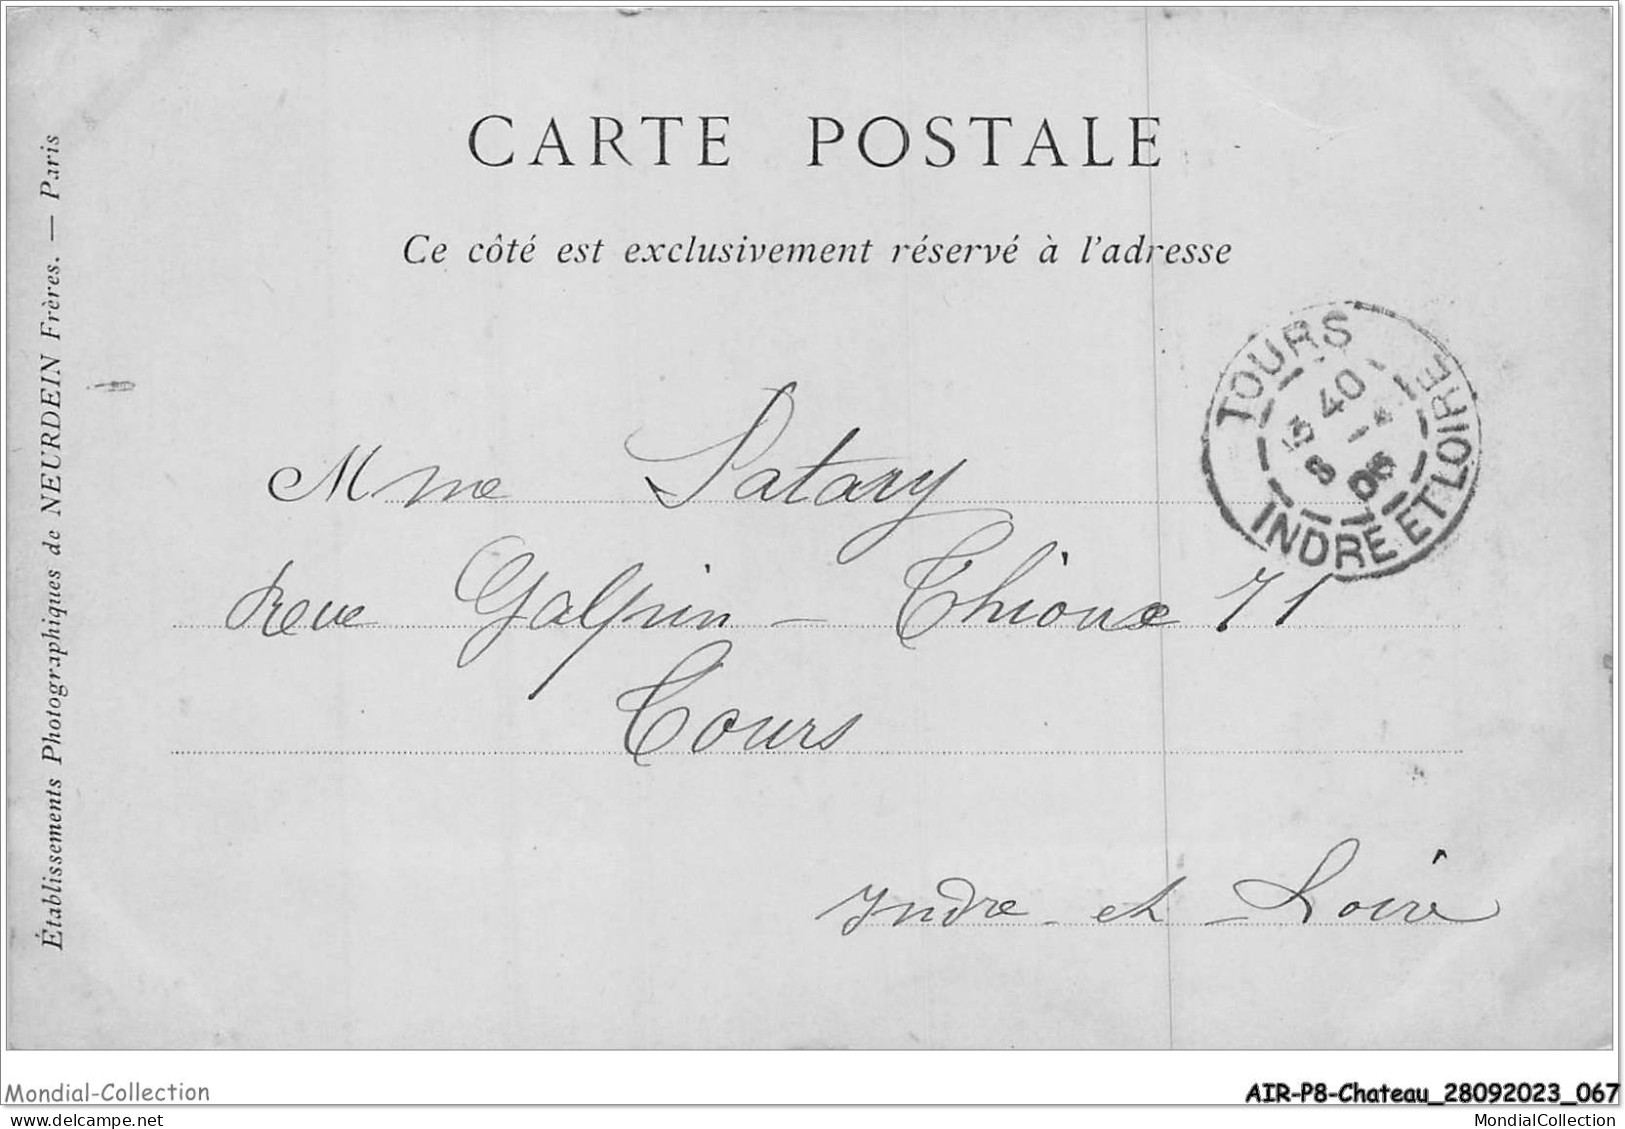 CARTE POSTALE
Ce côté est exclusivement réservé à l'adresse
Établissements Photographiques de NEURDEIN Frères. — Paris
TOURS
40
8 06
INDRE ET LOIRE
Mme Patary
Rue Galpin - Thioux 71
Tours
Indre et Loire
Mondial-Collection
AIR-P8-Chateau_28092023_067
delcampe.net
MondialCollection